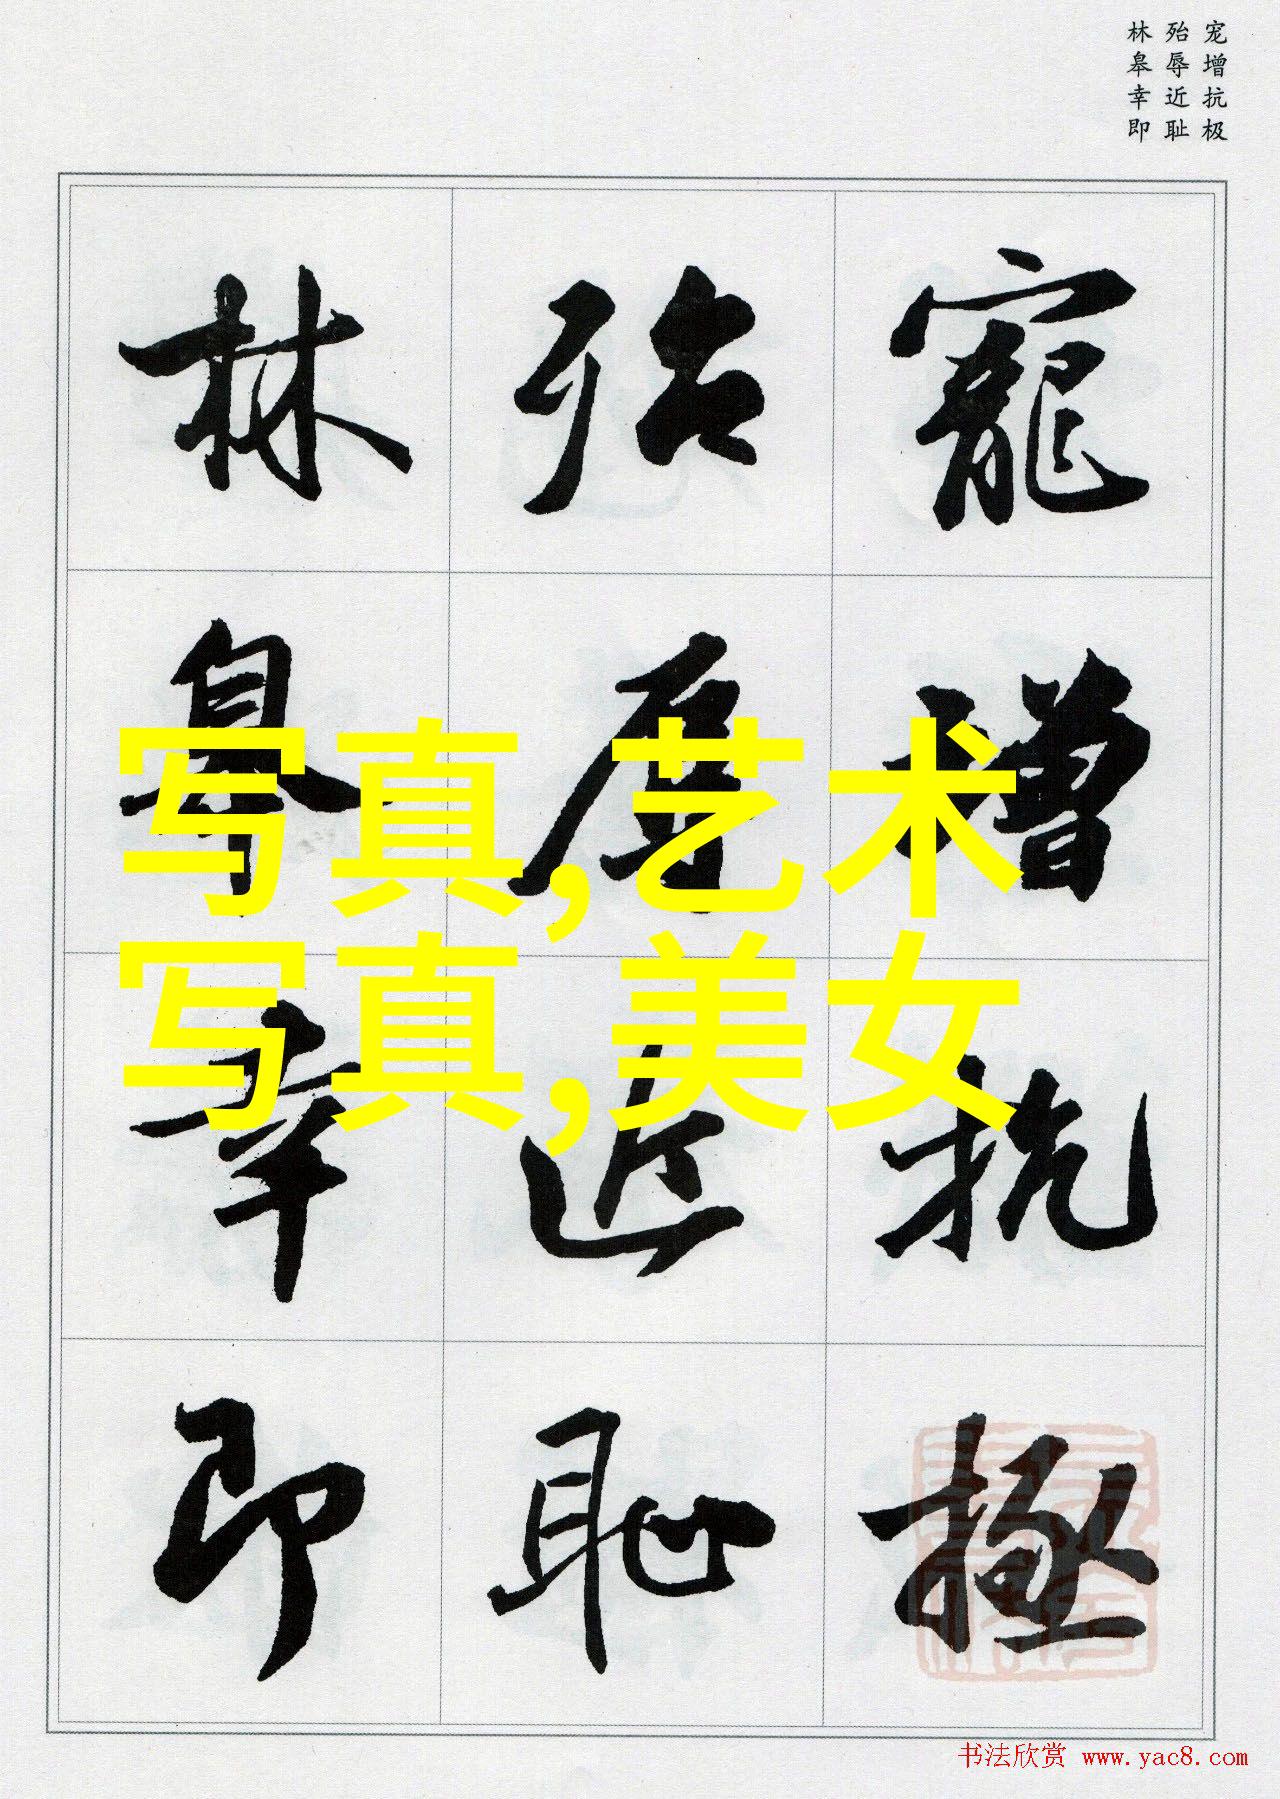 宠增抗极
殆辱近耻
林皋幸即
寵增抗極
殆辱近恥
林皋幸即
写真,艺术
写真,美女
书法欣赏 www.yac8.com